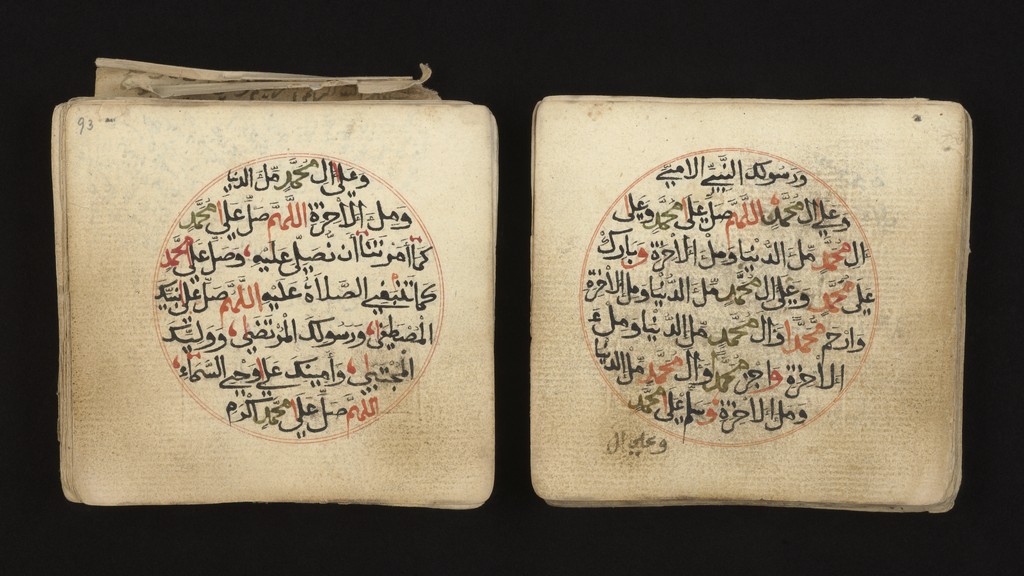 ورسولك النبي الامي
وعلى ال محمد اللهم صل على محمد وعلى
ال محمد ملء الدنيا وملء الاخرة وبارك
على محمد وعلى ال محمد ملء الدنيا وملء الاخرة
وارحم محمدا وال محمد ملء الدنيا وملء
الاخرة واجز محمدا وال محمد ملء الدنيا
وملء الاخرة وسلم على محمد
وعلى ال
93
وعلى ال محمد ملء الدنيا
وملء الاخرة اللهم صل على محمد
كما امرتنا أن نصلي عليه وصل على محمد
كما تنبغي الصلاة عليه اللهم صل على نبيك
المصطفى ورسولك المرتضى ووليك
المجتبى وأمينك على وحي السماء
اللهم صل على محمد اكرم